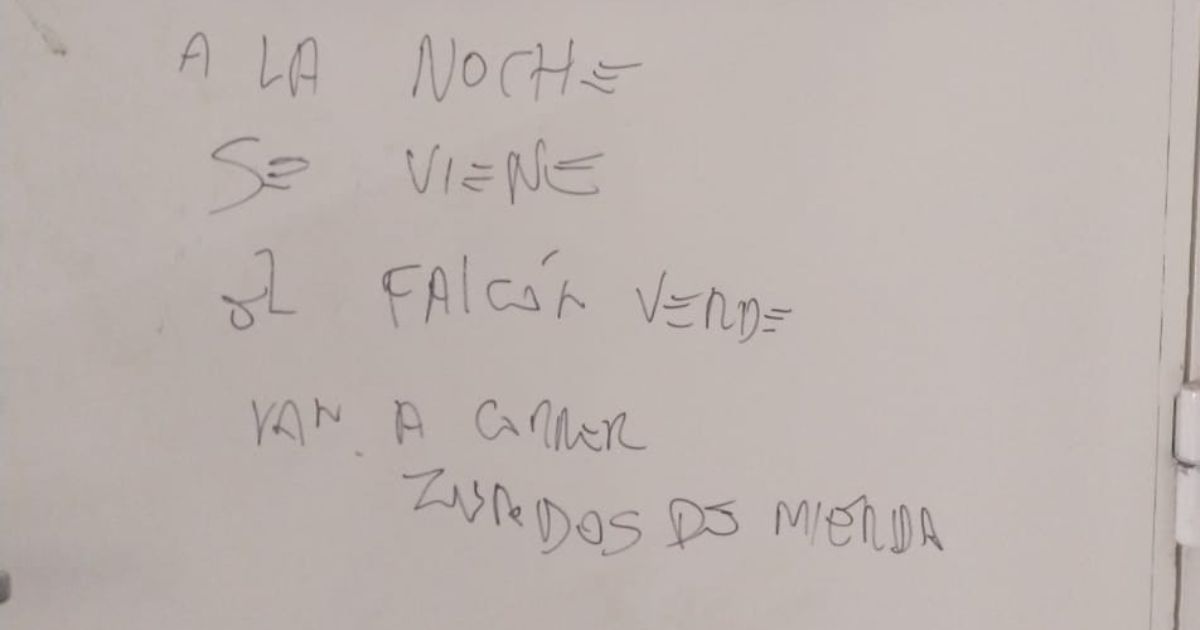 A LA NOCHE
SE VIENE
EL FALCÓN VERDE
VAN A CORRER
ZURDOS DE MIERDA